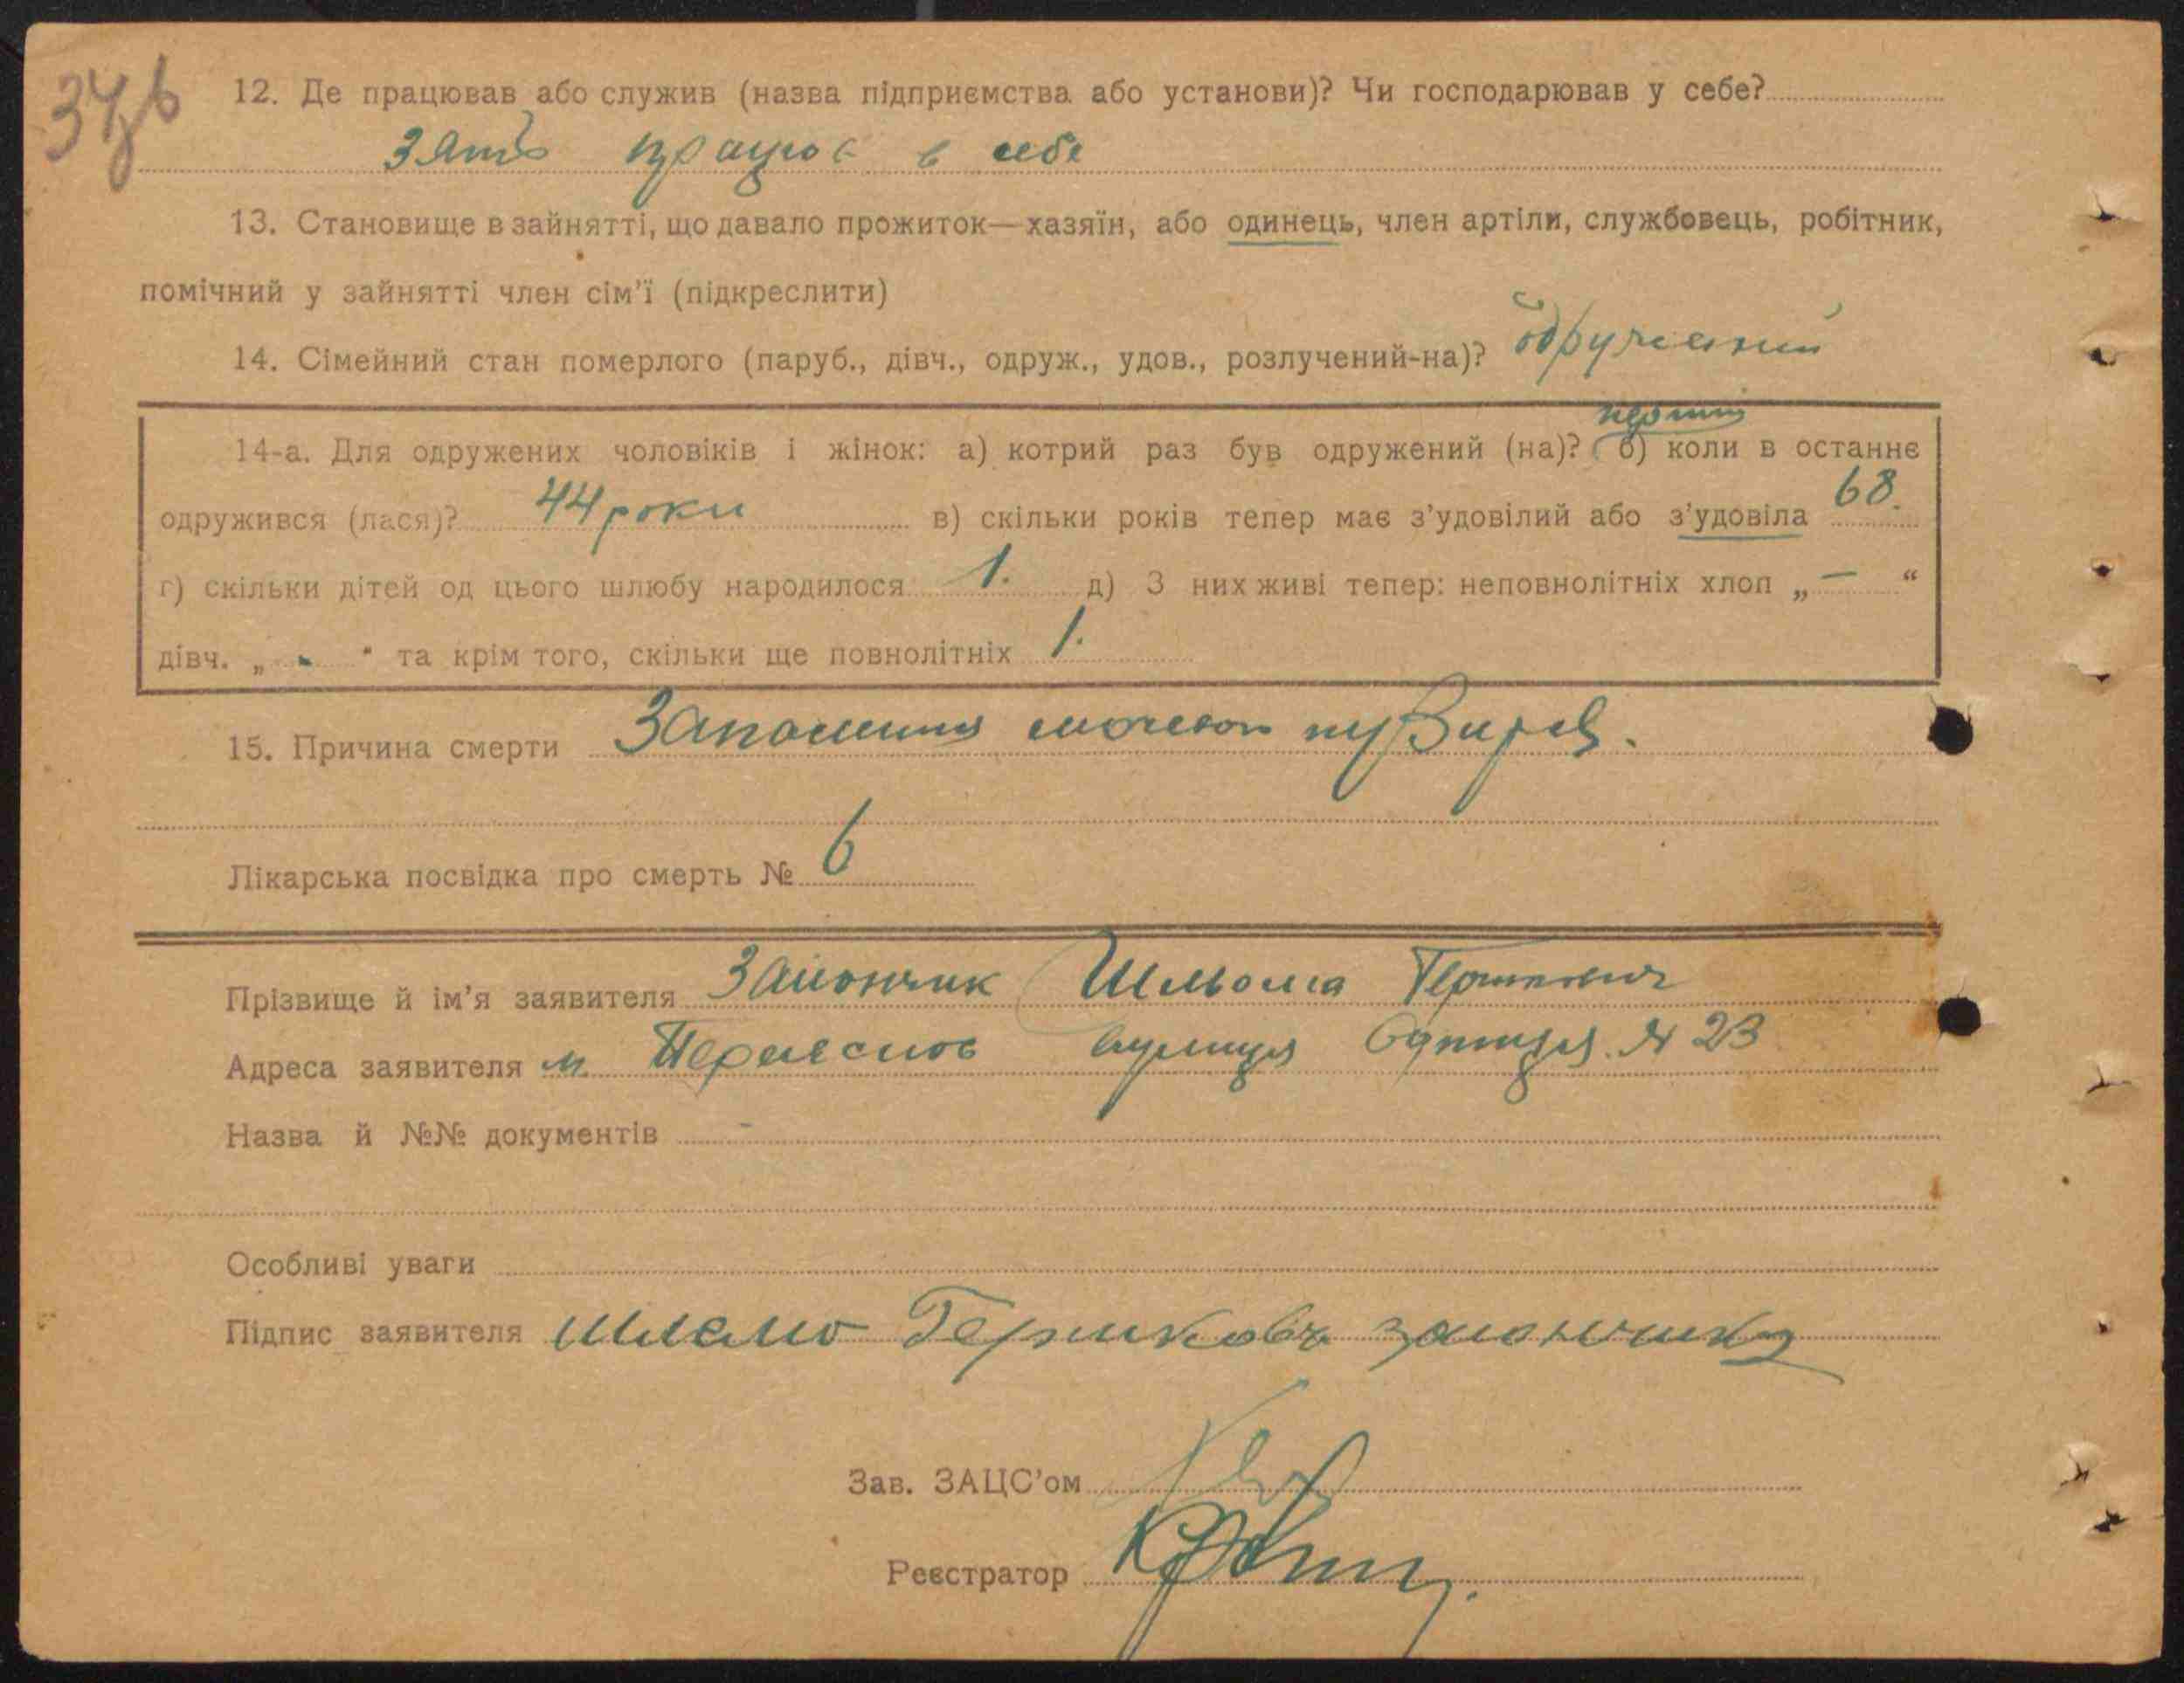 12. Де працював або служив (назва підприємства або установи)? Чи господарював у себе?
зять працює в себе
13. Становище в зайнятті, що давало прожиток—хазяїн, або одинець, член артіли, службовець, робітник,
помічний у зайнятті член сім'ї (підкреслити)
14. Сімейний стан померлого (паруб., дівч., одруж., удов., розлучений-на)?
перший
14-а. Для одружених чоловіків і жінок: а) котрий раз був одружений (на)? б) коли в останнє
одружився (лася)? 44 роки в) скільки років тепер має з'удовілий або з'удовіла 68.
г) скільки дітей од цього шлюбу народилося 1. д) З них живі тепер: неповнолітніх хлоп „ — “
дівч. „ - “ та крім того, скільки ще повнолітніх 1.
15. Причина смерти
Лікарська посвідка про смерть № 6
Прізвище й ім'я заявителя Зайончик Шльома Гершкович
Адреса заявителя м. вулиця № 23
Назва й №№ документів -
Особливі уваги
Підпис заявителя Шлемо Гершкович
Зав. ЗАЦС'ом
Реєстратор